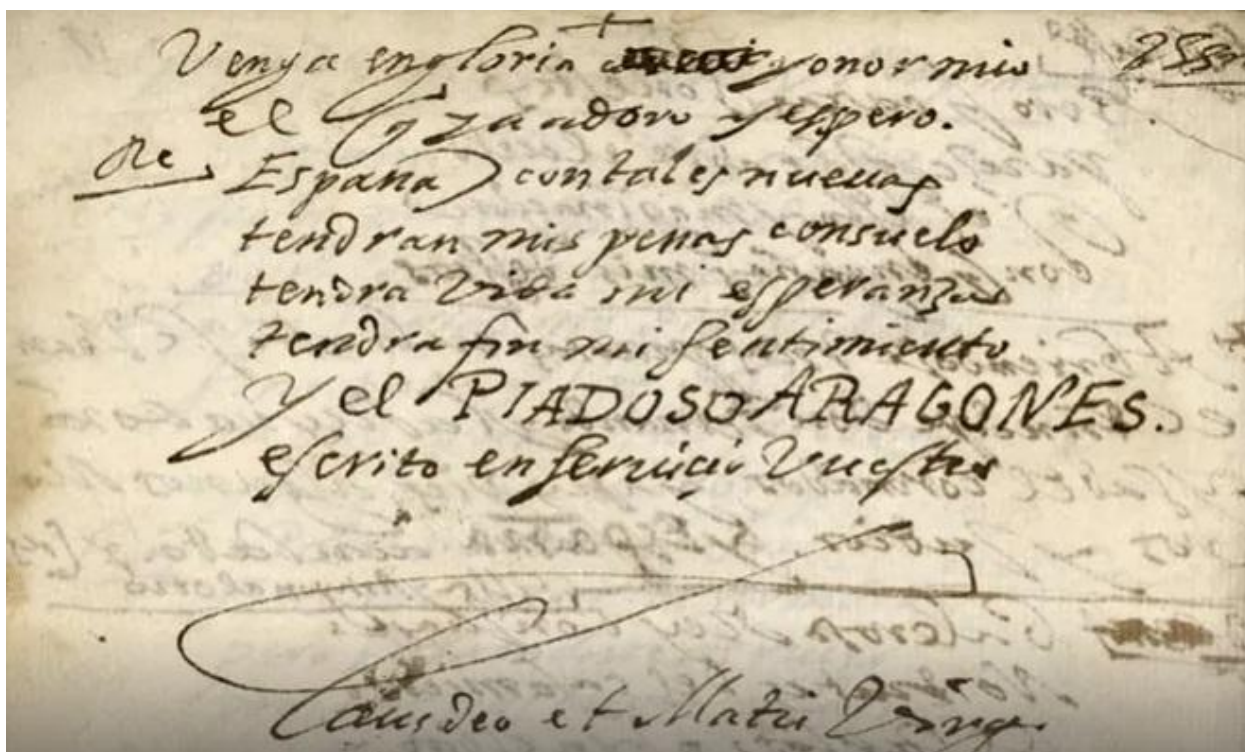 Venga en gloria y onor mio
el q ya adoro y espero.
Re España con tales nueuas
tendran mis penas consuelo
tendra Vida mi esperanza
tendra fin mi sentimiento
Y el PIADOSO ARAGONES.
escrito en seruicio Vuestro
Laus deo et Matri Virgi